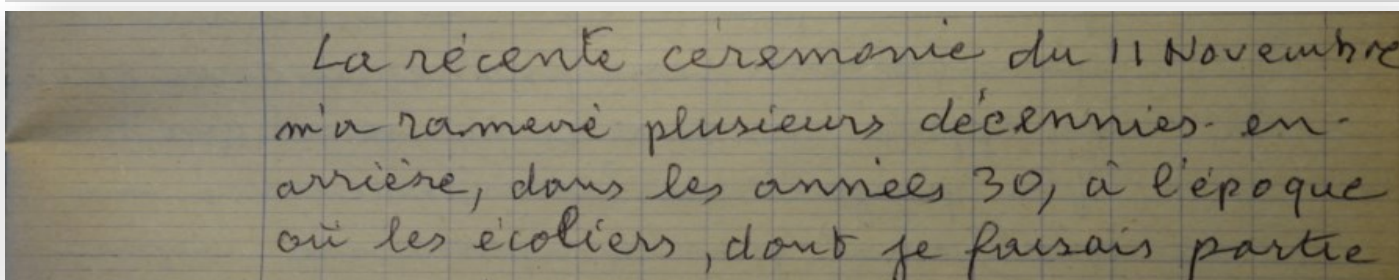 La récente cérémonie du 11 Novembre
m'a ramené plusieurs décennies en
arrière, dans les années 30, à l'époque
où les écoliers, dont je faisais partie